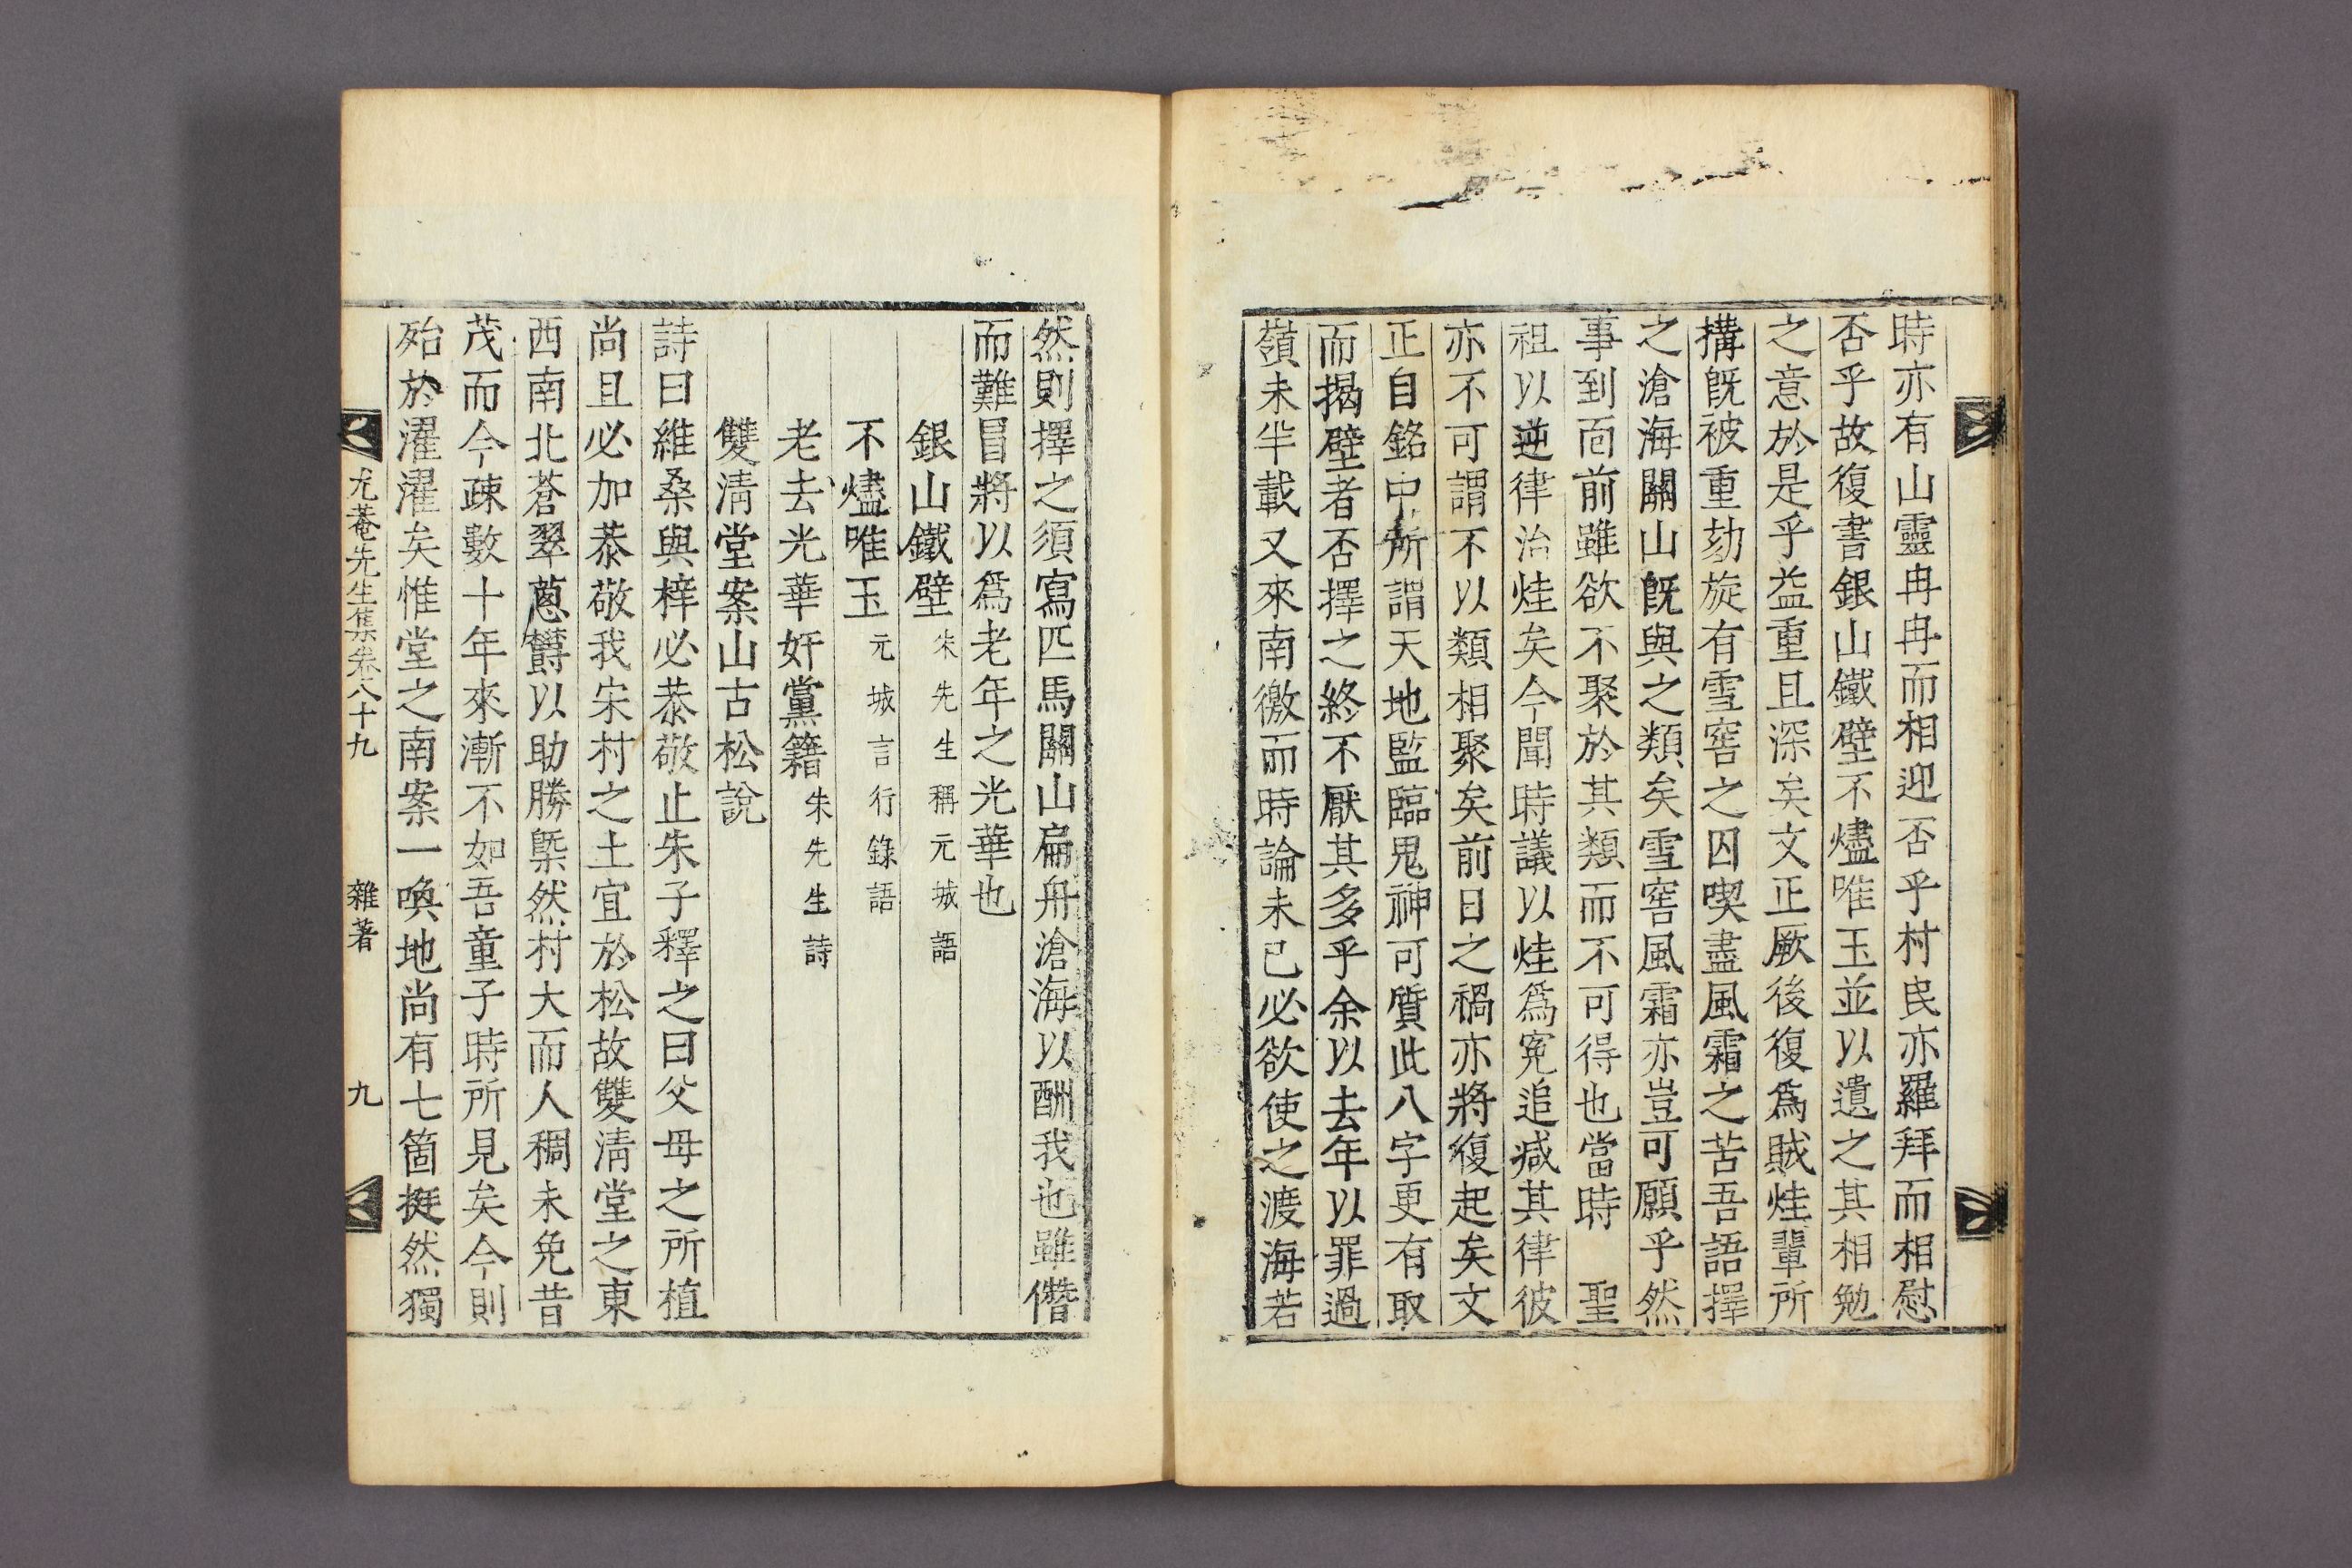 時亦有山靈冉冉而相迎否乎村民亦羅拜而相慰
否乎故復書銀山鐵壁不燼唯玉並以遺之其相勉
之意於是乎益重且深矣文正厥後復爲賊烓輩所
搆旣被重劾旋有雪窖之囚喫盡風霜之苦吾語擇
之滄海關山旣與之類矣雪窖風霜亦豈可願乎然
事到面前雖欲不聚於其類而不可得也當時 聖
祖以逆律治烓矣今聞時議以烓爲寃追减其律彼
亦不可謂不以類相聚矣前日之禍亦將復起矣文
正自銘中所謂天地監臨鬼神可質此八字更有取
而揭壁者否擇之終不厭其多乎余以去年以罪過
嶺未半載又來南徼而時論未已必欲使之渡海若
然則擇之須寫匹馬關山扁舟滄海以酬我也雖僭
而難冒將以爲老年之光華也
銀山鐵壁 朱先生稱元城語
不燼唯玉 元城言行錄語
老去光華奸黨籍 朱先生詩
雙淸堂案山古松說
詩曰維桑與梓必恭敬止朱子釋之曰父母之所植
尚且必加恭敬我宋村之土宜於松故雙淸堂之東
西南北蒼翠蔥欝以助勝槩然村大而人稠未免昔
茂而今疎數十年來漸不如吾童子時所見矣今則
殆於濯濯矣惟堂之南案一喚地尚有七箇挺然獨
尤菴先生集卷八十九 雜著 九